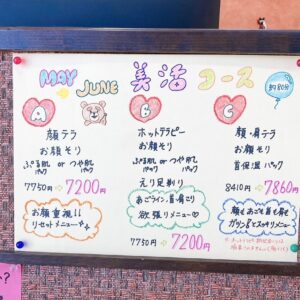 MAY
JUNE
美活コース
約80分
A
顔テラ
お顔そり
ぷる肌 or つや肌
パック パック
7750⇨7200円
お顔重視!!
リセットメニュー
B
ホットテラピー
お顔そり
ぷる肌 or つや肌
パック パック
えり足剃り
あごライン、首肩こり
欲張りメニュー♡
7750⇨7200円
C
顔・肩テラ
お顔そり
首保湿パック
8410⇨7860円
顔もあごも首も肩も